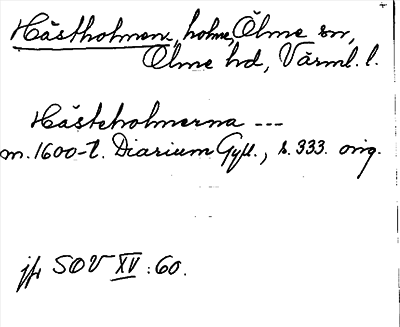 Hästholmen, holme, Ölme sn,
Ölme hd, Värml. l.
Hästeholmerna ---
m. 1600-t. Diarium Gyll., s. 333. orig.
jfr SOV XV : 60.